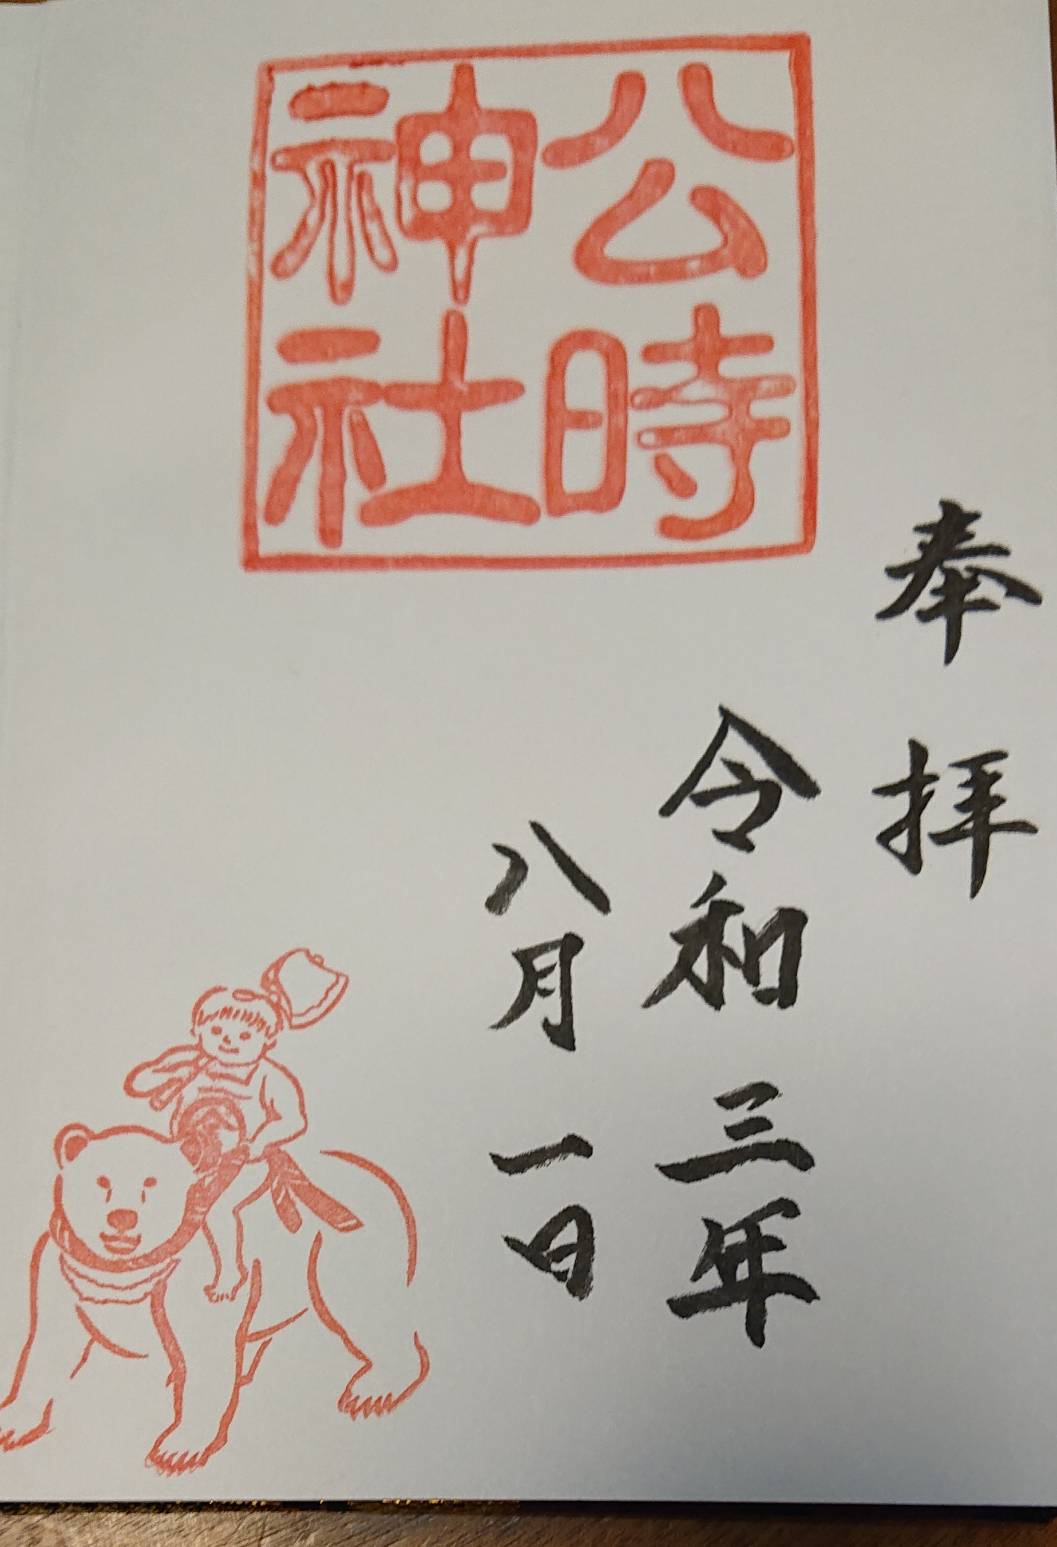 奉拝
令和三年
八月一日
公時
神社